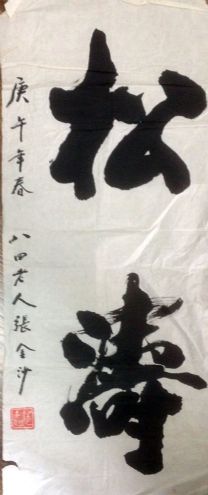 松濤
庚午年春
八四老人張金沙